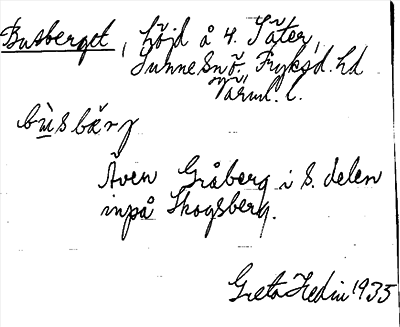 Busberget, höjd å 4. Säter,
Sunne Snö. Fryksd. hd
Värml. l.
bùsbärj
Även Gråberg i S. delen
inpå Skogsberg.
Greta Hedin 1935